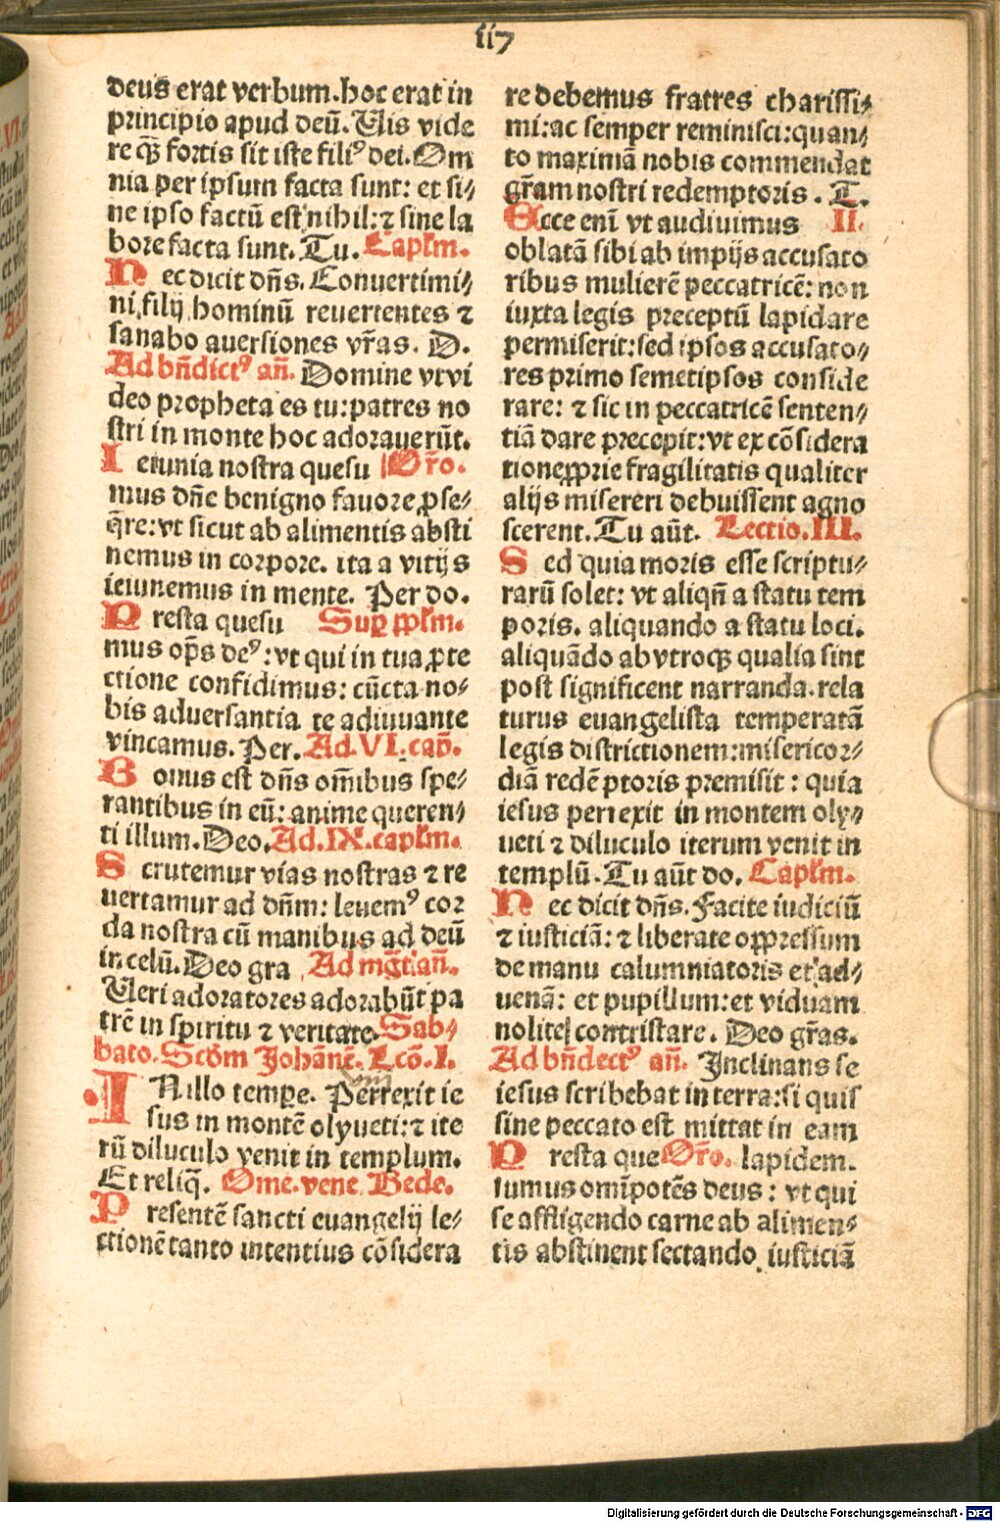 117
deus erat verbum. hoc erat in
principio apud deū. Vis vide
re qꝫ fortis sit iste filiꝰ dei. Om
nia per ipsum facta sunt: et si⸗
ne ipso factū est nihil: ⁊ sine la
bore facta sunt. Tu. Caplm.
Nec dicit dn̄s. Convertimi⸗
ni filij hominū reuertentes ⁊
sanabo auersiones vr̄as. D.
Ad bn̄dictꝰ an̄. Domine vt vi
deo propheta es tu: patres no
stri in monte hoc adorauerūt.
Ieiunia nostra quesu Or̄o.
mus dn̄e benigno fauore ꝓse⸗
q̄re: vt sicut ab alimentis absti
nemus in corpore. ita a vitijs
ieiunemus in mente. Per do.
Presta quesu Suꝑ pplm.
mus op̄s deꝰ: vt qui in tua ꝓte
ctione confidimus: cūcta no⸗
bis aduersantia te adiuuante
vincamus. Per. Ad. VI. cap̄.
Bonus est dn̄s om̄ibus spe⸗
rantibus in eū: anime queren⸗
ti illum. Deo. Ad. IX. caplm.
Scrutemur vias nostras ⁊ re
uertamur ad dn̄m: leuemꝰ cor
da nostra cū manibus ad deū
in celū. Deo gra Ad mg̅t an̄.
Veri adoratores adorabūt pa
trē in spiritu ⁊ veritate. Sab⸗
bato. Scd̄m Johānē. Lcō. I.
IN illo tempe. Perrexit ie
sus in montē olyueti: ⁊ ite
rū diluculo venit in templum.
Et reliq̄. Ome. vene Bede.
Presentē sancti euangelij le⸗
ctionē tanto intentius cōsidera
re debemus fratres charissi⸗
mi: ac semper reminisci: quan⸗
to maximā nobis commendat
gr̄am nostri redemptoris. T.
Ecce enī vt audiuimus II.
oblatā sibi ab impijs accusato
ribus mulierē peccatricē: non
iuxta legis preceptū lapidare
permiserit: sed ipsos accusato⸗
res primo semetipsos conside
rare: ⁊ sic in peccatricē senten⸗
tiā dare precepit: vt ex cōsidera
tione ꝓprie fragilitatis qualiter
alijs misereri debuissent agno
scerent. Tu aūt. Lectio. III.
Sed quia moris esse scriptu⸗
rarū solet: vt aliqn̄ a statu tem
poris. aliquando a statu loci.
aliquādo ab vtroqꝫ qualia sint
post significent narranda. rela
turus euangelista temperatā
legis districtionem: misericor⸗
diā redēptoris premisit: quia
iesus perrexit in montem oly⸗
ueti ⁊ diluculo iterum venit in
templū. Tu aūt do. Caplm.
Nec dicit dn̄s. Facite iudiciū
⁊ iusticiā: ⁊ liberate oppressum
de manu calumniatoris et ad⸗
uenā: et pupillum: et viduam
nolite contristare. Deo gr̄as.
Ad bn̄dectꝰ an̄. Inclinans se
iesus scribebat in terra: si quis
sine peccato est mittat in eam
Presta que Or̄o. lapidem.
sumus omīpotēs deus: vt qui
se affligendo carne ab alimen⸗
tis abstinent sectando iusticiā
Digitalisierung gefördert durch die Deutsche Forschungsgemeinschaft - DFG